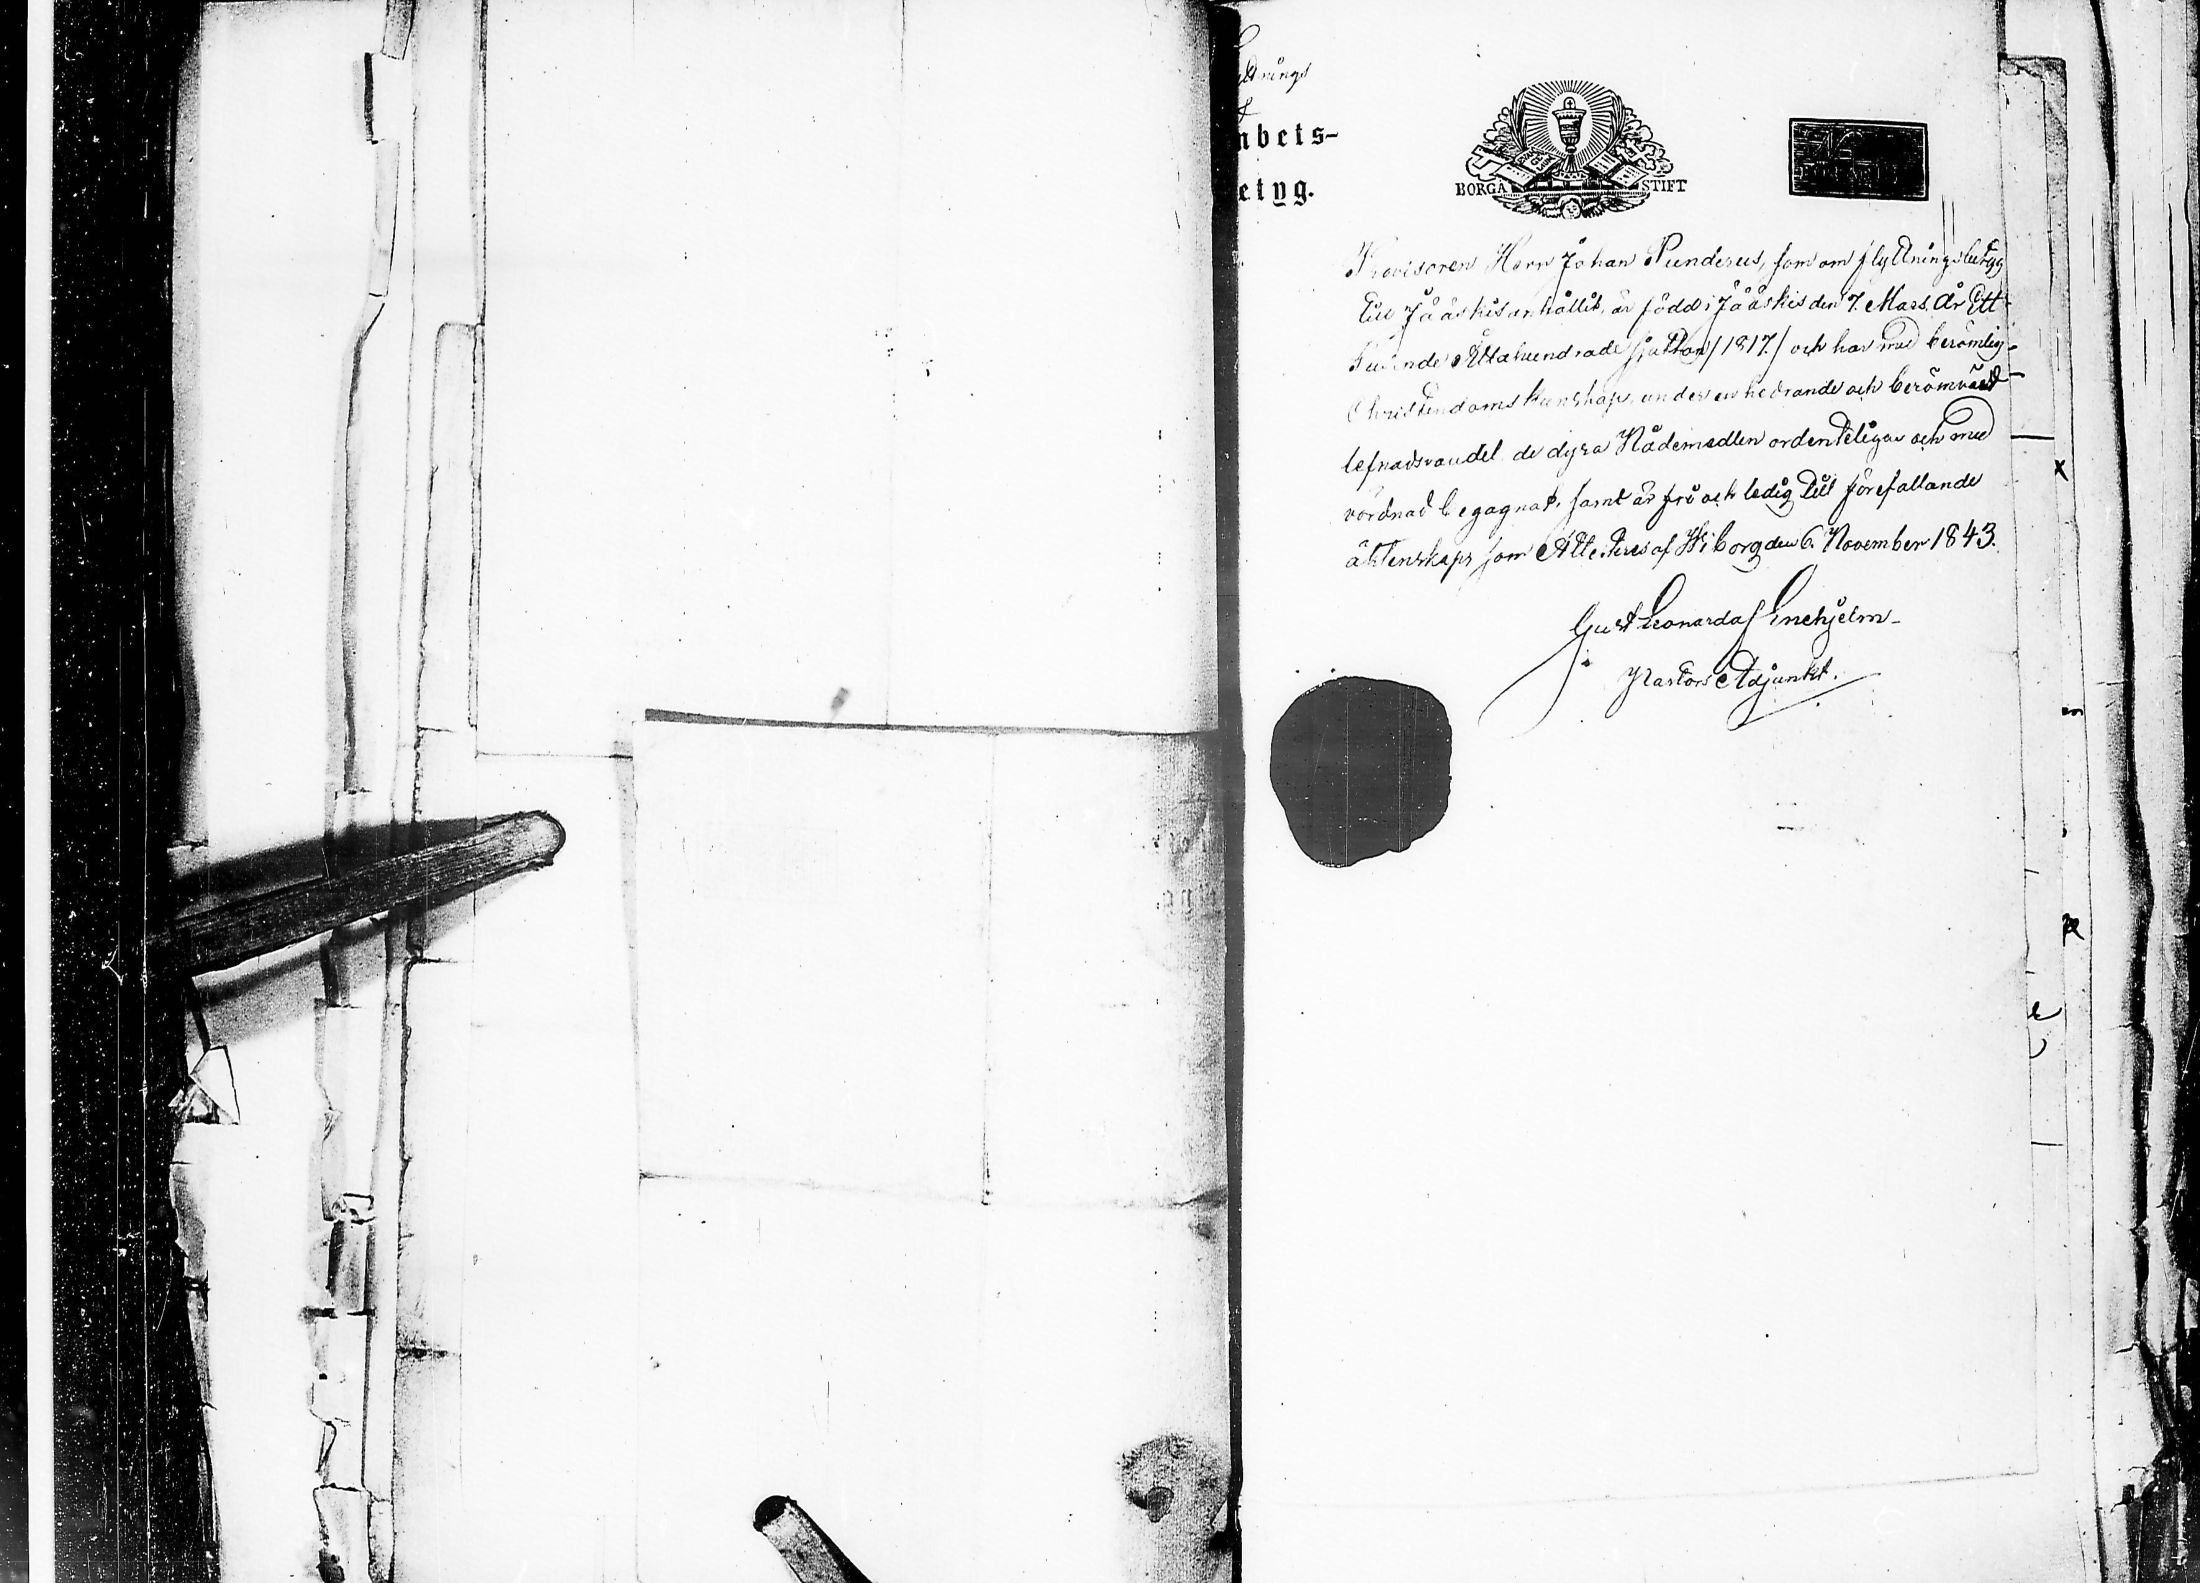 yttnings
nbets-
etyg.
BORGÅ STIFT
Provisoren Herr Johan Punderus, som om flyttningsbetyg
till Jääskis anhållit, är född i Jääskis den 7. Mars År Ett
tusende Åttahundrade sjutton /:1817:/ och har med berömlig
Christendomskunskap, under en hedrande och berömvärd
lefnadsvandel de dyra Nådemedlen ordenteligen och med
vördnad begagnat, samt är fri och ledig till förefallande
äktenskap, som Attesteras af Wiborg den 6. November 1843.
Gust Leonard af Enehjelm
Pastors Adjunkt.